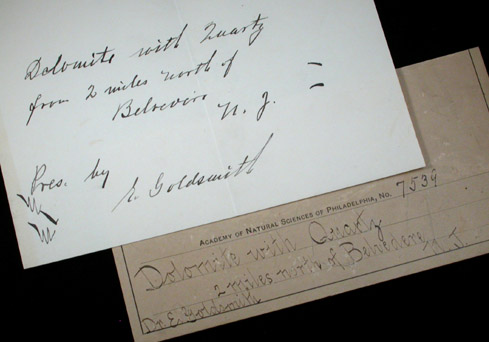 Dolomite with Quartz
from 2 miles north of
Belvedire N. J.
Pres. by
E. Goldsmith
ACADEMY OF NATURAL SCIENCES OF PHILADELPHIA, NO. 7539
Dolomite with Quartz
2 miles north of Belvedere N. J.
Dr. E. Goldsmith